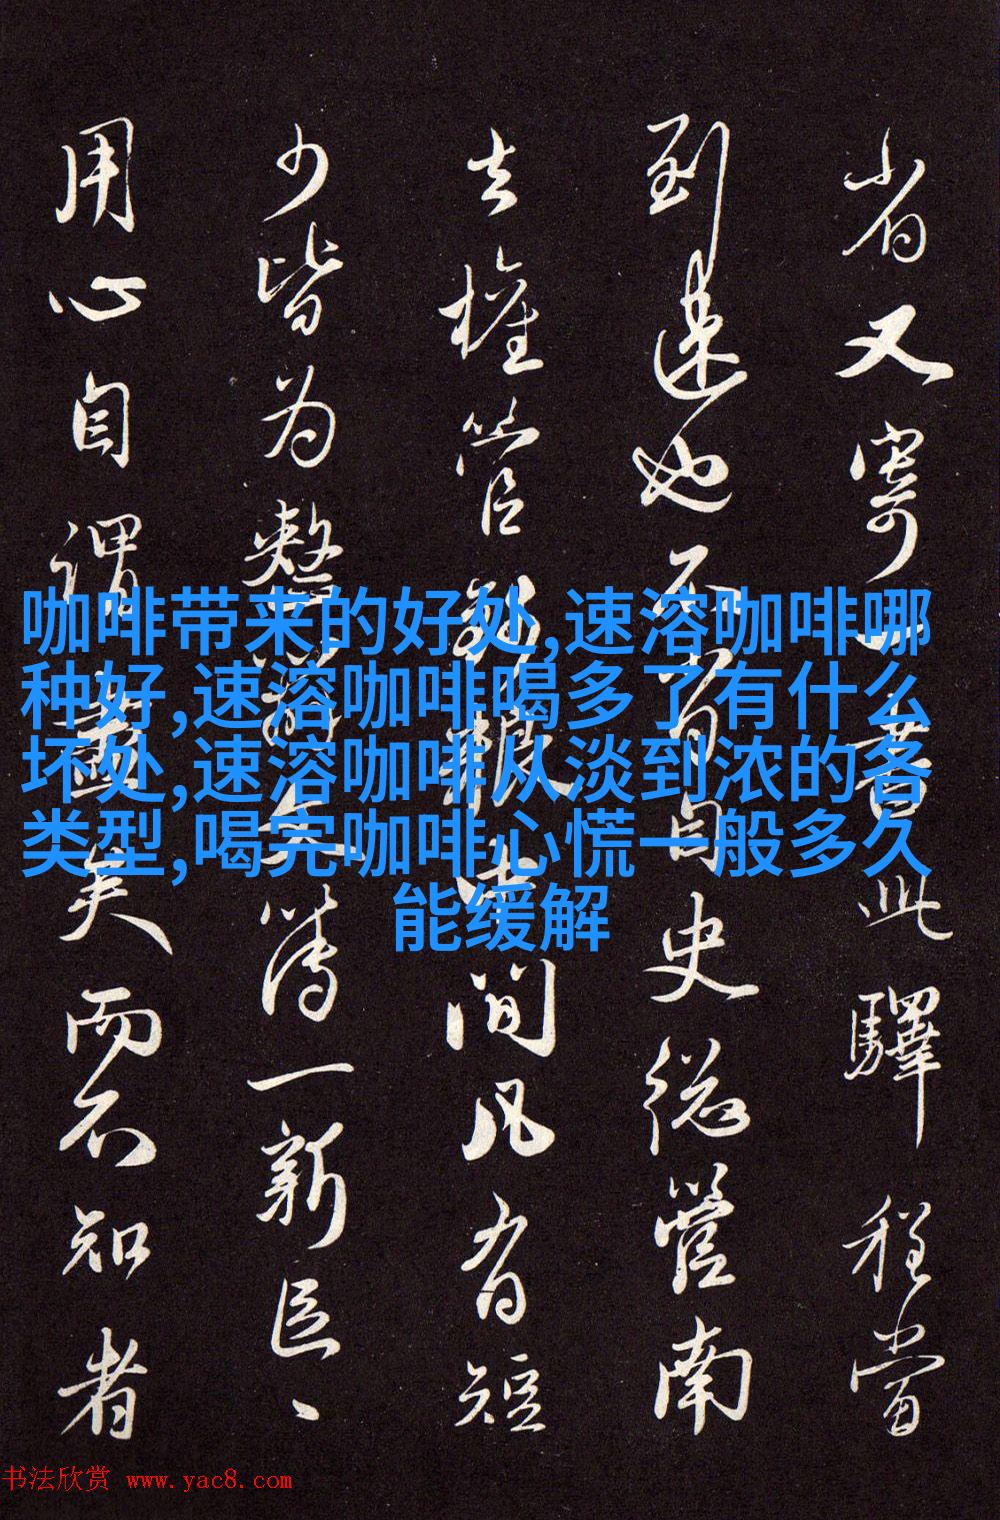 省又寄書此驛程當
到速也不有自史総管南
去權管間凡有短
少皆为整文薄一新
用心自謂盡矣而不知者
咖啡带来的好处,速溶咖啡哪
种好,速溶咖啡喝多了有什么
坏处,速溶咖啡从淡到浓的各
类型,喝完咖啡心慌一般多久
能缓解
书法欣赏 www.yac8.com